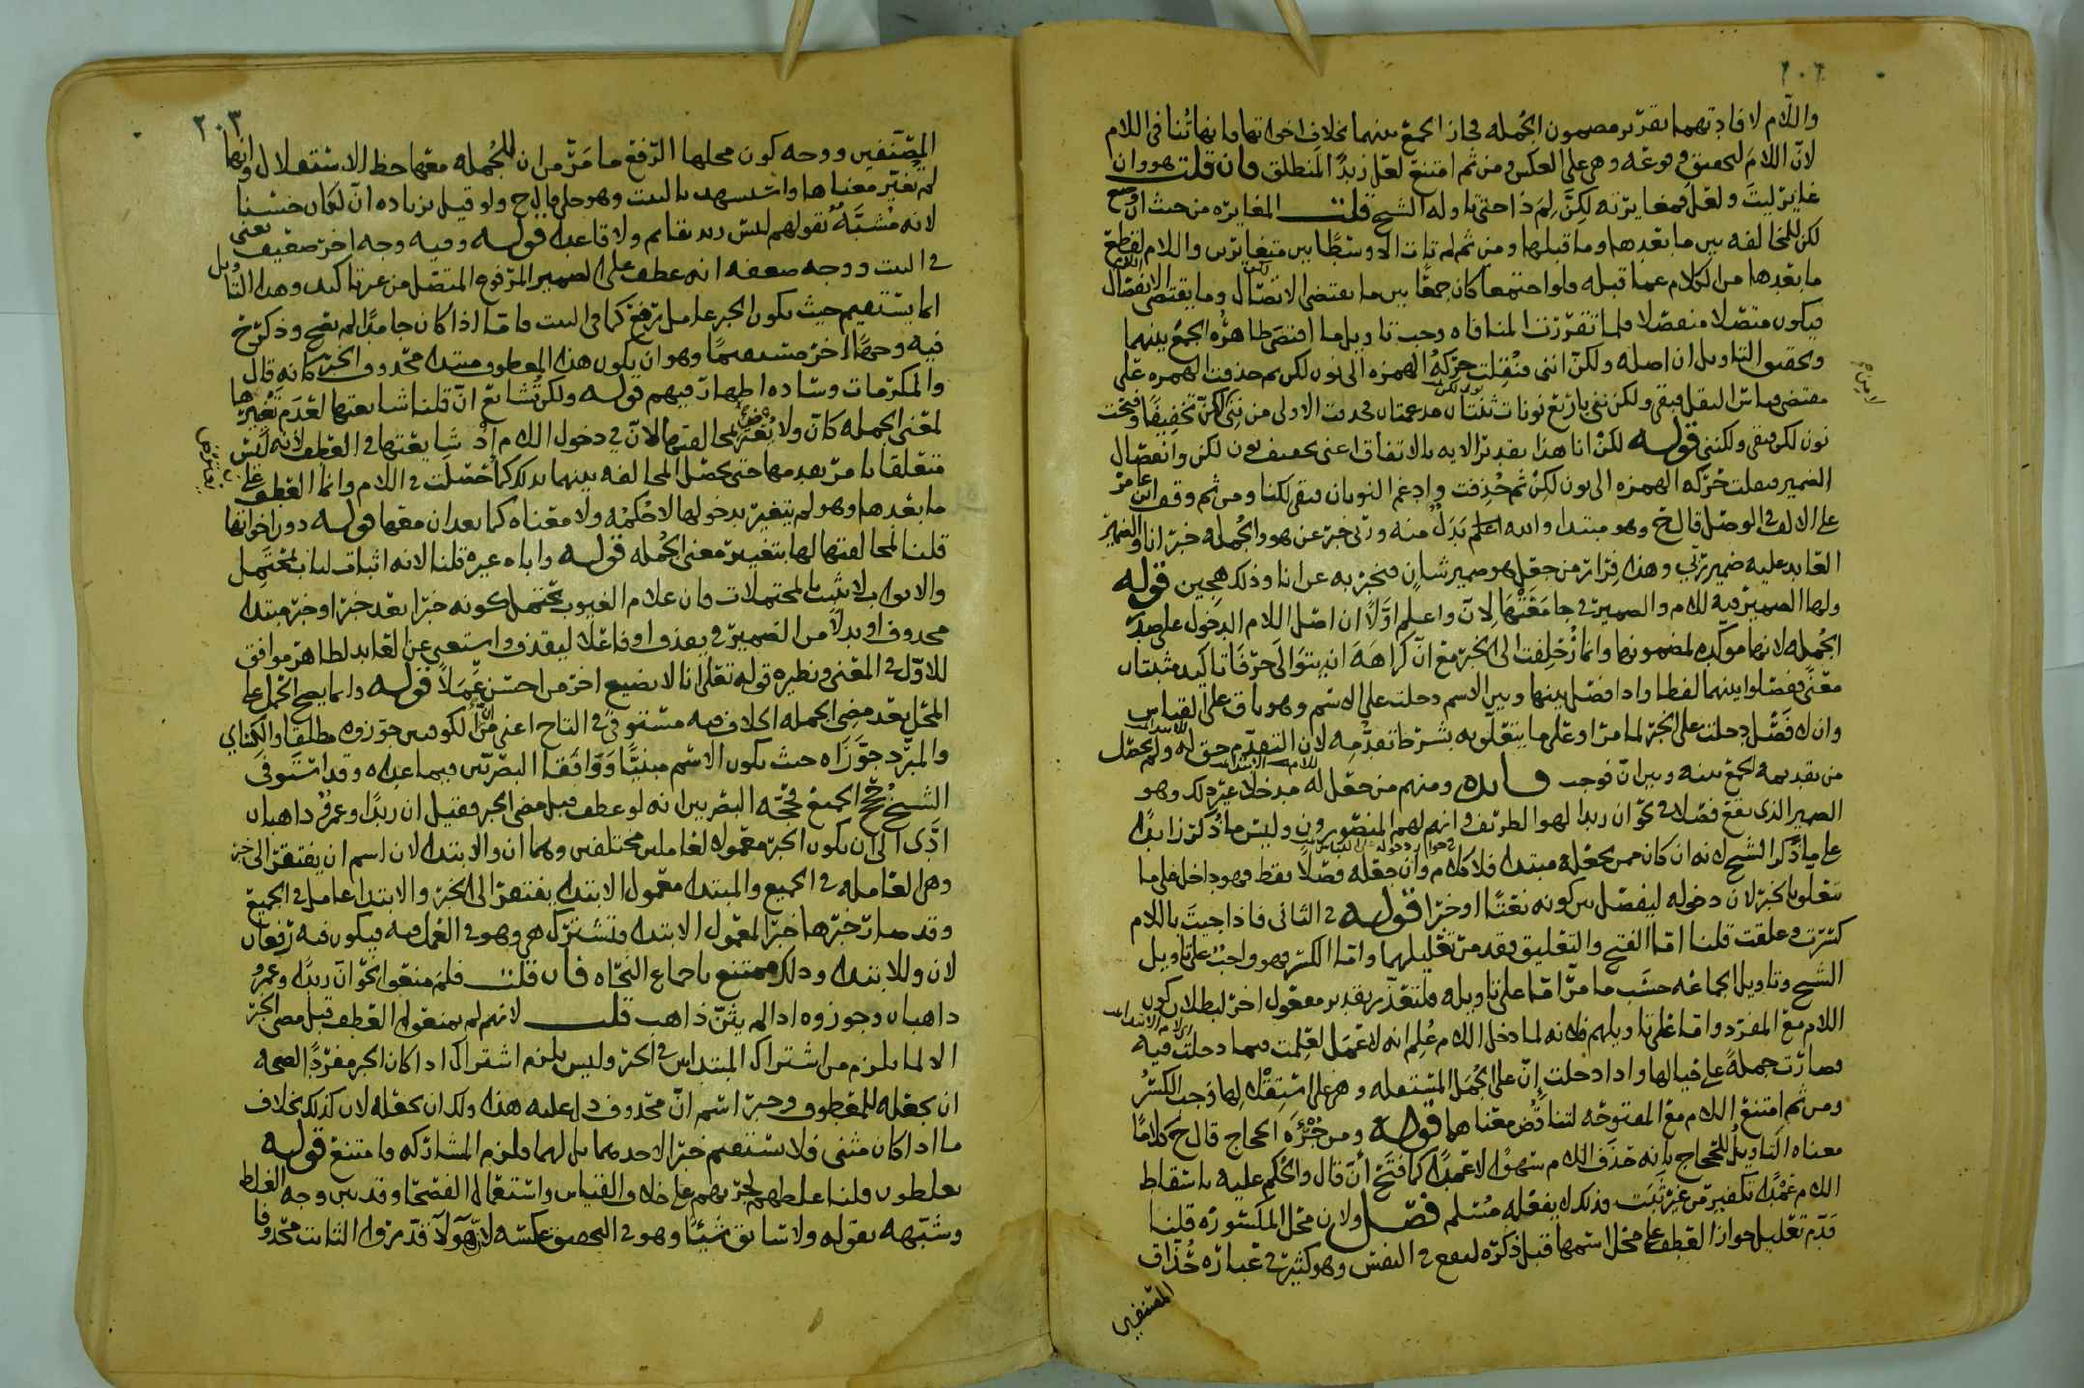 ٢٠٢
واللام لافادتهما تقدير مضمون الجمله فجاز الجمع بينهما بخلاف اخواتها فانها تنافي اللام
لان اللام لتحقيق وهي على العكس ومن ثم امتنع لعل زيدا لمنطلق فان قلت هو وان
غاير ليت ولعل فمغايرته لكن لم ذا حتى تاوله الشيخ قلت المغايره من حيث ان وضع
لكن للمخالفه بين ما بعدها وما قبلها ومن ثم لم تات الا وسطا بين متغايرين واللام لقطع
ما بعدها من الكلام عما قبله فلو اجتمعا كان جمعا بين ما يقتضي الاتصال وما يقتضي الانفصال
فيكون متصلا منفصلا فلما تقررت المنافاه وجب تاويل ما اقتضى ظاهره الجمع بينهما
وتحقيق التاويل ان اصله ولكن انني فنقلت حركه الهمزه الى نون لكن ثم حذفت الهمزه على
مقتضى قياس النقل فبقي ولكنني باربع نونات ثنتان مدغمتان فحذفت الاولى من نوني لكن تخفيفا وفتحت
نون لكن فبقي ولكنني قوله لكن انا هذا تقدير الايه بالاتفاق اعني تخفيف نون لكن وانفصال
الضمير فنقلت حركه الهمزه الى نون لكن ثم حذفت وادغم النونان فبقي لكنا ومن ثم وقف ابن عامر
على الالف في الوصل قال وهو مبتدا والله اعلم بدل منه وربي خبر عن هو والجمله خبر انا والضمير
العايد عليه ضمير ربي وهذا فرار من جعل هو ضمير شان فيخبر به عن انا وذلك هجين قوله
ولها الضمير فيه للام والضمير في جامعتها لان واعلم اولا ان اصل اللام الدخول على صدر
الجمله لانها موكده لمضمونها وانما زحلفت الى الخبر مع ان كراهه ان يتوالى حرفا تاكيد مثبتان
معنى ففصلوا بينهما لفظا واذا فصل بينها وبين الاسم دخلت على الاسم وهو باق على القياس
وان لا فصل دخلت على الخبر لما مر او على ما يتعلق به بشرط تقدمه لان التقدم حق له ولم يحصل
من تقديمه الجمع بينه وبين ان فوجب فايده ومنهم من جعل له مدخلا غير ذلك وهو
الضمير الذي يقع فصلا في نحو ان زيدا لهو الظريف وانهم لهم المنصورون وليس ما ذكر زايدا
على ما ذكر الشيخ لانه ان كان ممن يجعله مبتدا فلا كلام وان جعله فصلا فقط فهو داخل على ما
يتعلق بالخبر لان دخوله ليفصل بين كونه نعتا او خبرا قوله في الثاني فاذا جيت باللام
كسرت وعلقت قلنا اما الفتح والتعليق فقد مر تعليلهما واما الكسر فهو واجب على تاويل
الشيخ وتاويل الجماعه حسب ما مر اما على تاويله فلتعذر تقدير مفعول اخر لبطلان كون
اللام مع المفرد واما على تاويلهم فلانه لما دخل اللام علم انه لا عمل لعلمت فيما دخلت فيه
فصارت جمله على حيالها واذا دخلت ان على الجمل المستقله وهي على استقلالها وجب الكسر
ومن ثم امتنع اللام مع المفتوحه لتناقض معناهما قوله ومن جرءه الحجاج قال كلاما
معناه التاويل للحجاج بانه حذف اللام سهوا لا عمدا كما فتح ان قال والحكم عليه باسقاط
اللام عمدا تكفير من غير ثبت وذلك لا يفعله مسلم فصل ولان محل المكسوره قلنا
قدم تعليل جواز العطف على محل اسمها قبل ذكره ليقع في النفس وهو كثير في عباره حذاق
المصنفين
٢٠٣
المصنفين ووجه كون محلها الرفع ما مر من ان للجمله معها حظ الاستقلال وانها
لم تغير معناها واستشهد بالبيت وهو جلي ولو قيل بزياده ان لكان حسنا
لانه مشبه بقولهم ليس زيد بقايم ولا قاعدا قوله وفيه وجه اخر ضعيف يعني
في البيت ووجه ضعفه انه عطف على الضمير المرفوع المتصل من غير تاكيد وهذا التاويل
انما يستقيم حيث يكون الخبر عاملا يرفع كما في البيت واما اذا كان جامدا لم يصح وذكر
فيه وجها اخر مستقيما وهو ان يكون هذا المعطوف مبتدا محذوف الخبر كانه قال
والمكرمات وساده اطهار فيهم قوله ولكن تشايع ان قلنا شايعتها لعدم تغييرها
لمعنى الجمله كان ولا يضر مخالفتها لان في دخول اللام اذ شايعتها في العطف لانه ليس
متعلقا بما مر بعدها حتى تحصل المخالفه بينهما بذلك كما حصلت في اللام وانما العطف على
ما بعدها وهو لم يتغير بدخولها لا حكمه ولا معناه كما بعد ان معها قوله دون اخواتها
قلنا لمخالفتها لها بتغيير معنى الجمله قوله واباه غيره قلنا لانه اثبات لباب بمحتمل
والابواب لا تثبت بالمحتملات فان علام الغيوب يحتمل كونه خبرا بعد خبر او خبر مبتدا
محذوف او بدلا من الضمير في يقذف او فاعلا ليقذف واستغني عن العايد لظاهر موافق
للاول في المعنى ونظيره قوله تعالى انا لا نضيع اجر من احسن عملا قوله وانما يصح الحمل على
المحل بعد مضي الجمله الخلاف فيه مستوفى في التاج اعني من ان الكوفيين جوزوه مطلقا والكسائي
والمبرد جوزاه حيث يكون الاسم مبنيا ووافقا البصريين فيما عداه وقد استوفى
الشيخ حجج الجميع فحجه البصريين انه لو عطف قبل مضي الخبر فقيل ان زيدا وعمرو ذاهبان
ادى الى ان يكون الخبر معمولا لعاملين مختلفين وهما ان والابتدا لان اسم ان يفتقر الى خبر
وهي العامله في الجميع والمبتدا معمول الابتدا يفتقر الى الخبر والابتدا عامل في الجميع
وقد صار خبرها خبر المعمول الابتدا فتشترك هي وهو في العمل فيه فيكون فيه رفعان
لان وللابتدا وذلك ممتنع باجماع النحاه فان قلت فلم منعوا نحو ان زيدا وعمرو
ذاهبان وجوزوه اذا لم يثن ذاهب قلت لانهم لم يمنعوا العطف قبل مضي الخبر
الا لما يلزم من اشتراك المبتداين في الخبر وليس يلزم اشتراك اذا كان الخبر مفردا لصحه
ان يجعله للمعطوف وخبر اسم ان محذوف دل عليه هذا ولك ان تجعله لان كذلك بخلاف
ما اذا كان مثنى فلا يستقيم خبرا لاحدهما بل لهما فلزم المشاركه فامتنع قوله
يغلطون قلنا غلطهم لجريهم على خلاف القياس واستعمال الفصحا وقد بين وجه الغلط
وشبهه بقوله ولا سابق شيئا وهو في التحقيق عكسه لان هولا قدروا الثابت محذوفا